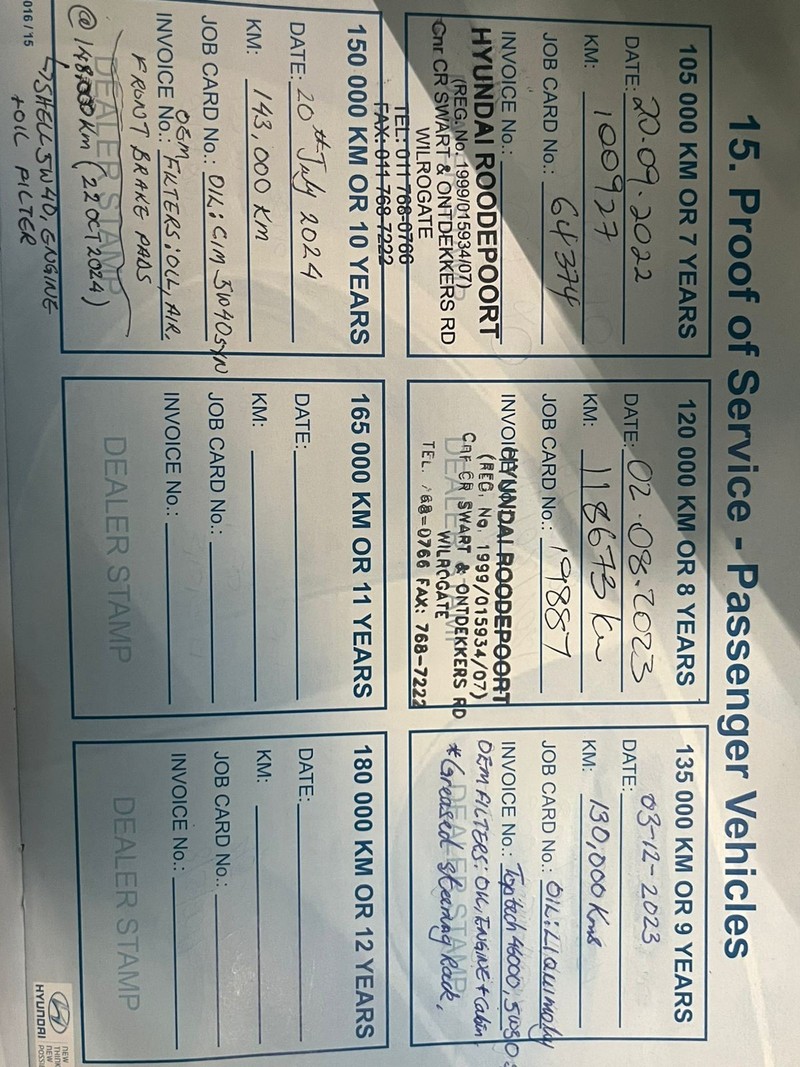 15. Proof of Service - Passenger Vehicles
105 000 KM OR 7 YEARS
DATE: 20.09.2022
KM: 100927
JOB CARD No.: 64374
INVOICE No.:
HYUNDAI ROODEPOORT
(REG. No. 1999/015934/07)
Cnr CR SWART & ONTDEKKERS RD
WILROGATE
TEL: 011 768-0766
FAX: 011 768-7222
120 000 KM OR 8 YEARS
DATE: 02.08.2023
KM: 118673 km
JOB CARD No.: 19887
INVOICE No.:
HYUNDAI ROODEPOORT
(REG. No. 1999/015934/07)
Cnr CR SWART & ONTDEKKERS RD
WILROGATE
TEL. 768-0766 FAX: 768-7222
DEALER STAMP
135 000 KM OR 9 YEARS
DATE: 03-12-2023
KM: 130,000 Kms
JOB CARD No.: OIL: LIQUI moly
INVOICE No.: Top tech 46000, 5W30
OEM FILTERS: OIL, ENGINE + Cabin.
DEALER STAMP
*(Greased steering Rack.
150 000 KM OR 10 YEARS
DATE: 20th July 2024
KM: 143,000 KM
JOB CARD No.: OIL: 5W40 SYN
INVOICE No.: OEM FILTERS: OIL, AIR,
FRONT BRAKE PADS
DEALER STAMP
@ 148000 Km (22 OCT 2024)
↳ SHELL 5W40, ENGINE
+ OIL FILTER
165 000 KM OR 11 YEARS
DATE:
KM:
JOB CARD No.:
INVOICE No.:
DEALER STAMP
180 000 KM OR 12 YEARS
DATE:
KM:
JOB CARD No.:
INVOICE No.:
DEALER STAMP
016/15
HYUNDAI
NEW
THINK
NEW
POSSI